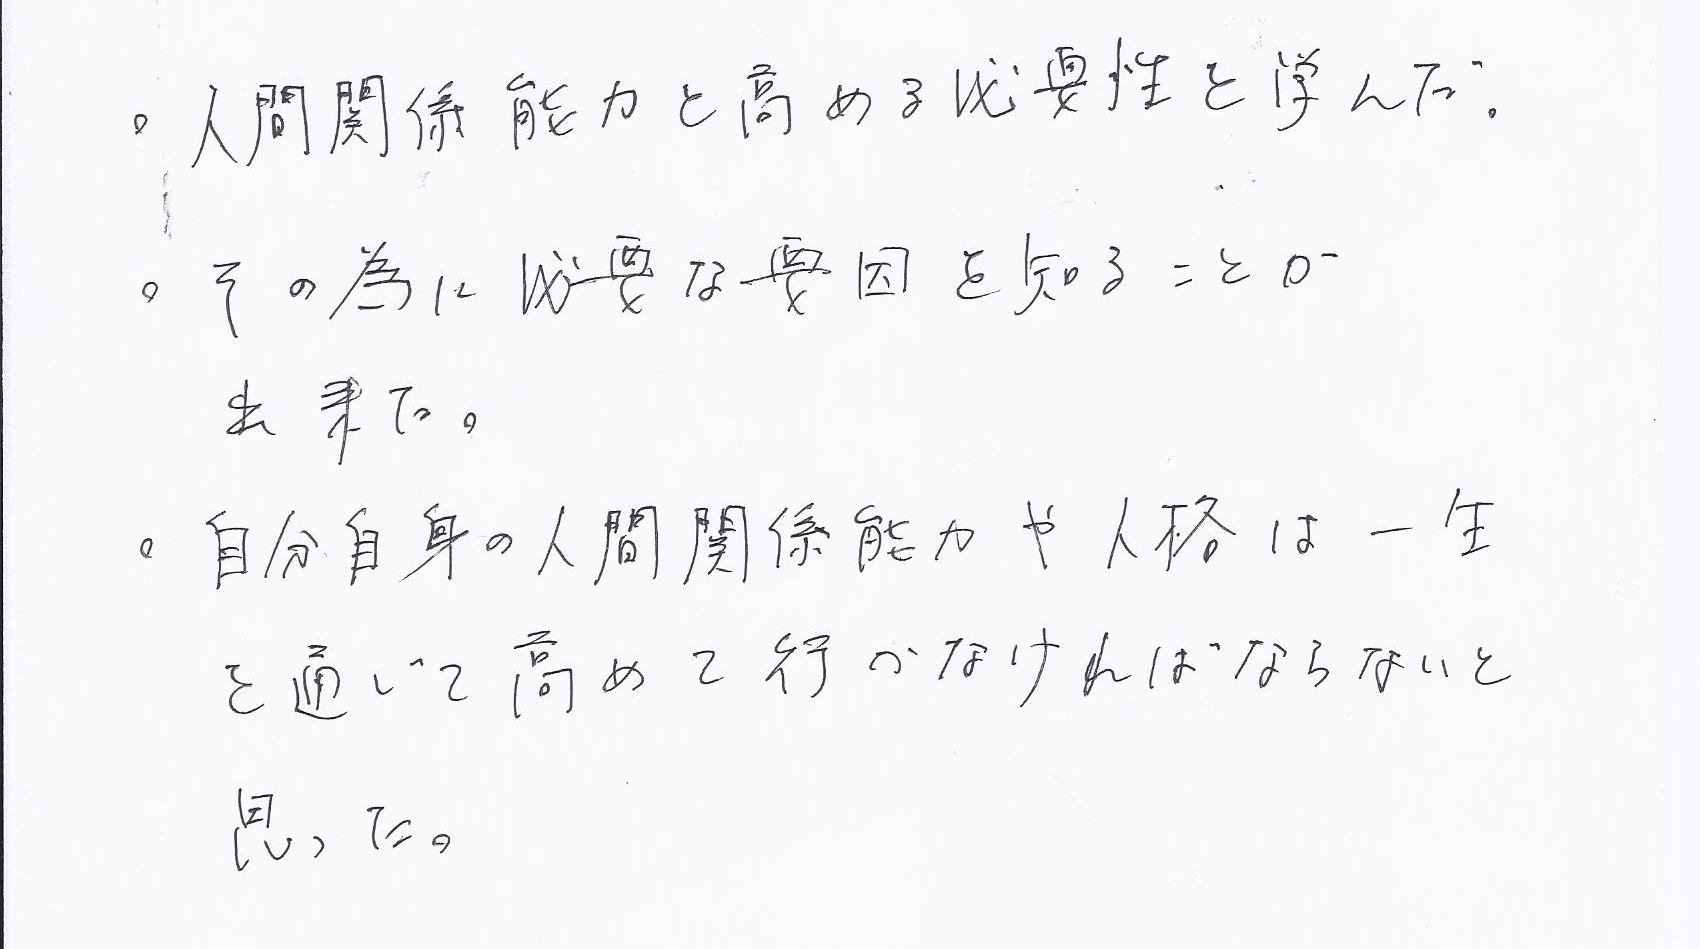 。人間関係能力を高める必要性を学んだ。
。その為に必要な要因を知ることが
出来た。
。自分自身の人間関係能力や人格は一生
を通じて高めて行かなければならないと
思った。